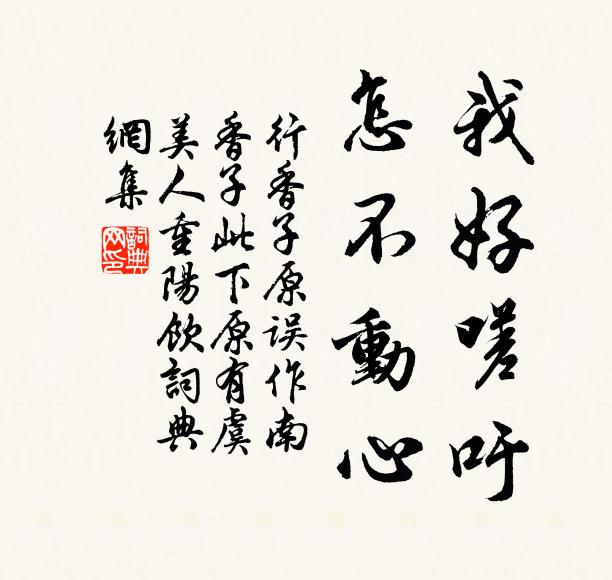 我好嗟吁
怎不動心
行香子原误作南
香子此下原有虞
美人重陽飲詞典
網集
詞典
网印